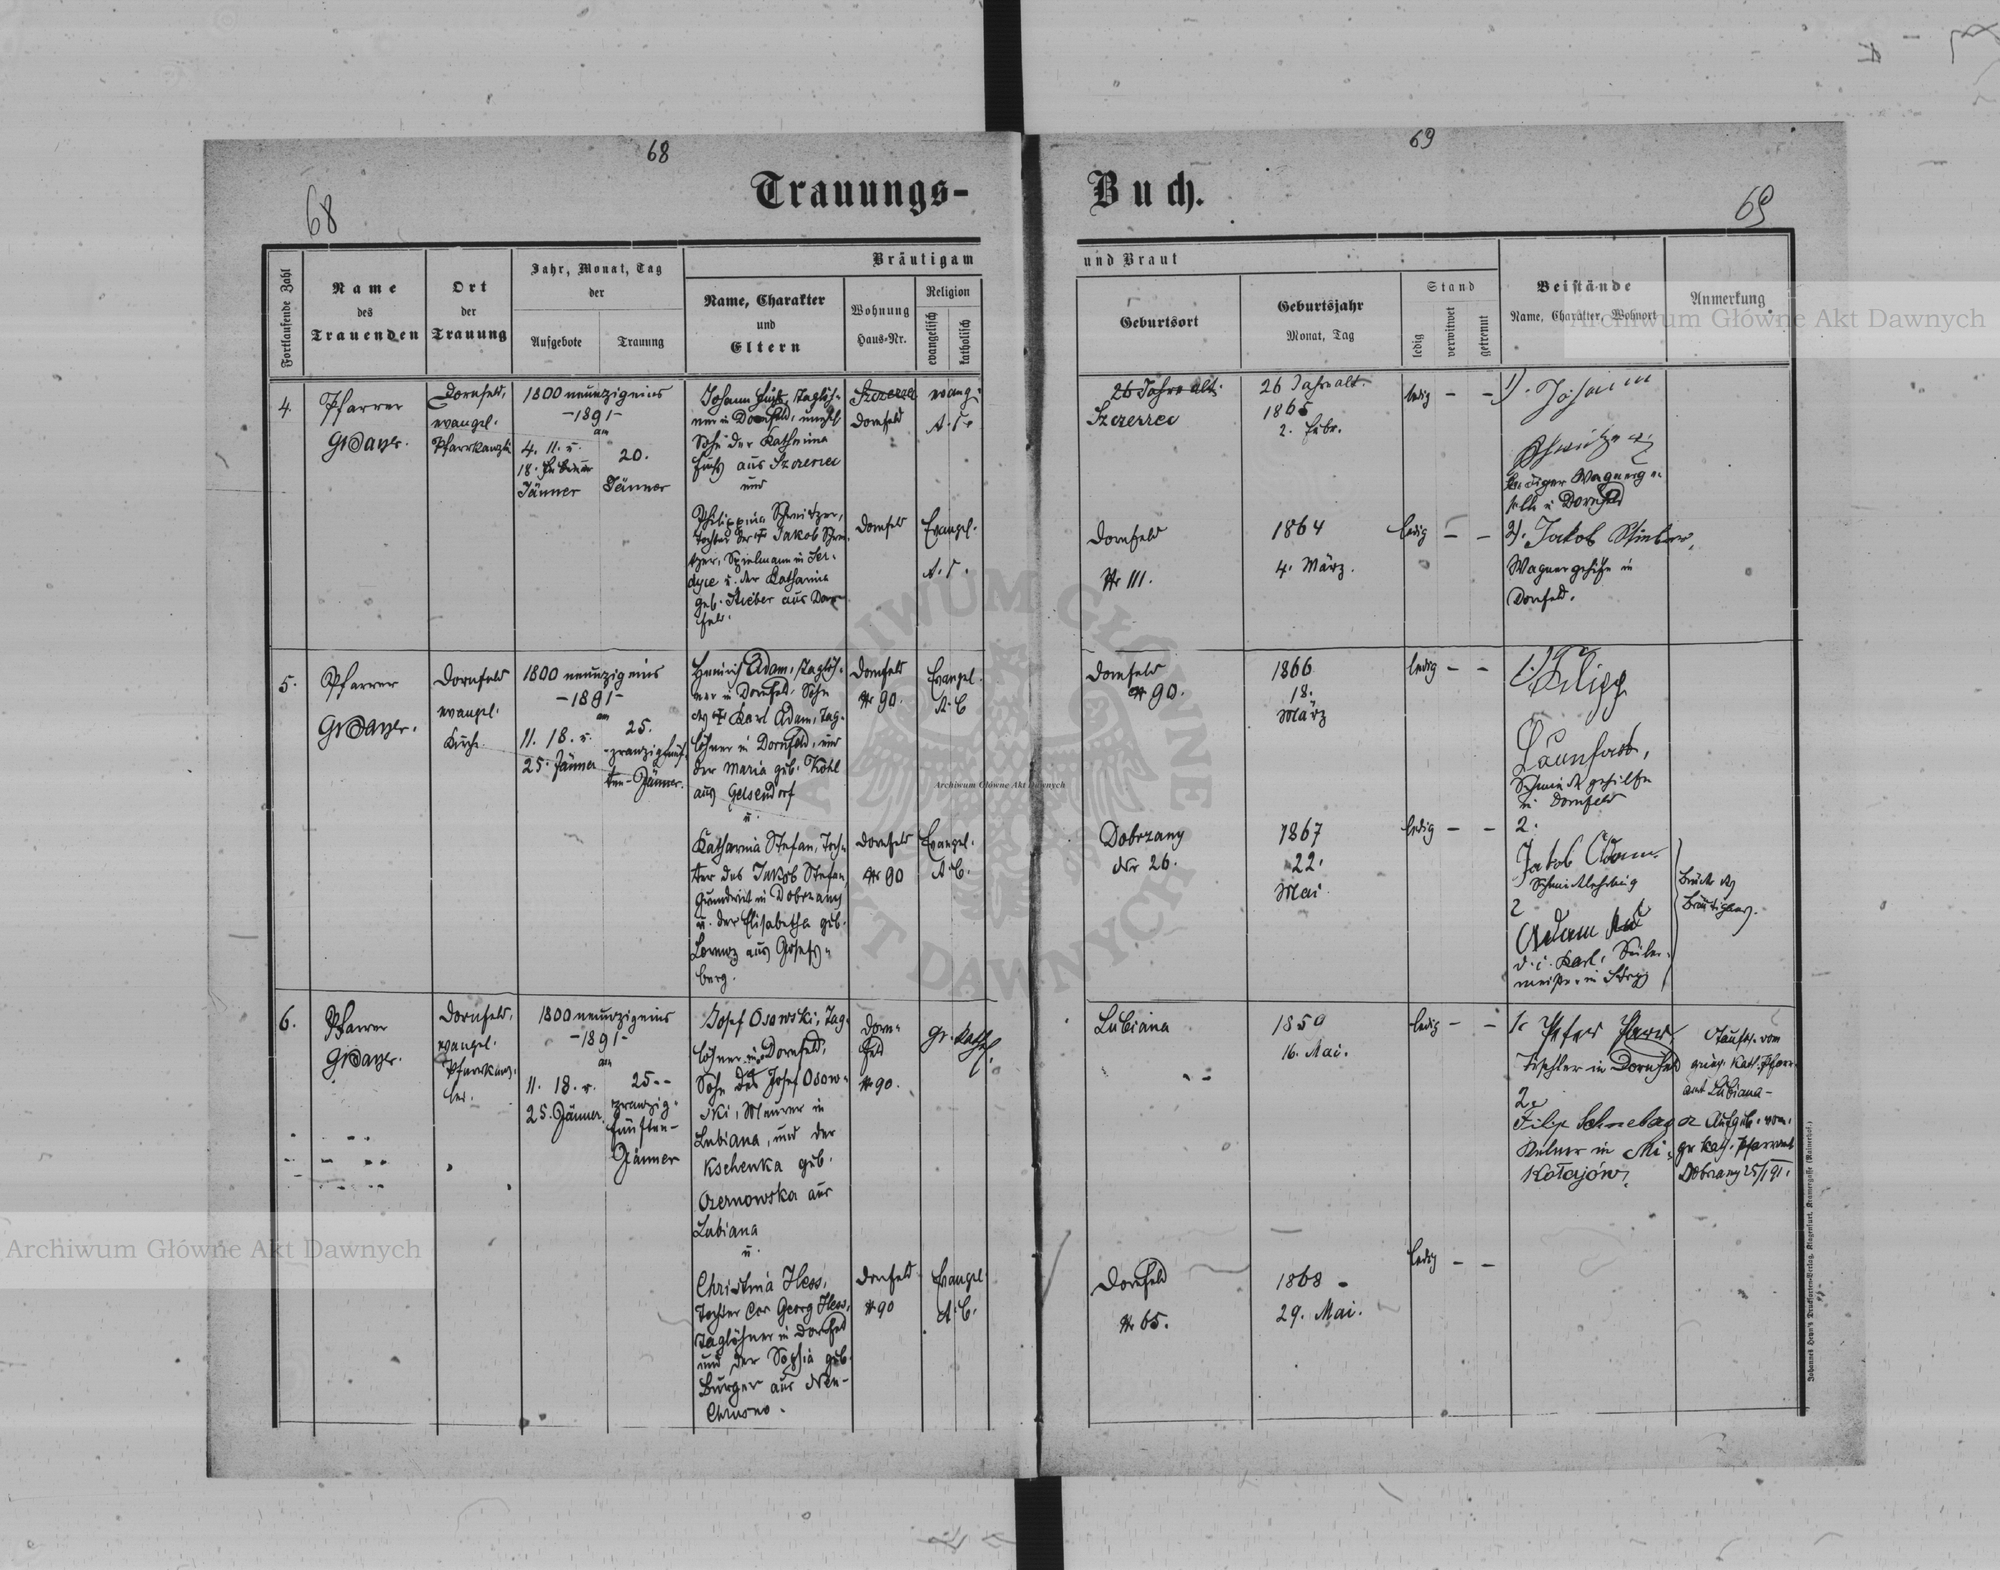 68
69
68
69
Trauungs-
Buch.
Fortlaufende Zahl
Name
des
Trauenden
Ort
der
Trauung
Jahr, Monat, Tag
der
Aufgebote
Trauung
Bräutigam
Name, Charakter
und
Eltern
Wohnung
Haus-Nr.
Religion
evangelisch
katholisch
und Braut
Geburtsort
Geburtsjahr
Monat, Tag
Stand
ledig
verwitwet
getrennt
Beistände
Name, Charakter, Wohnort
Anmerkung
4.
Pfarrer
Dornfeld,
evangel.
Pfarrkanzlei
1800 neunzigeins
-1891-
am
4. 11. u.
18.
Jänner
20.
Jänner
Johann Fuchs, Taglöh-
ner in Dornfeld, unehl
Sohn der Katharina
Fuchs aus Szczerzec
und
Szczerzec
Dornfeld
evang.
26 Jahre alt.
Szczerzec
26 Jahre alt.
1865
2. Febr.
ledig - -
1). Johann
Schweitzer
lediger Wagnerge-
selle in Dornfeld
Philippina Schweitzer,
Tochter des † Jakob Schwei-
tzer, Spielmann in Ser-
dyce u. der Katharina
geb. Stieber aus Dorn-
feld.
Dornfeld
Evangel.
Dornfeld
Nr 111.
1864
4. März.
ledig - -
2). Jakob Stieber,
Wagnergehilfe in
Dornfeld.
5.
Pfarrer
Dornfeld
evangel.
Kirche.
1800 neunzigeins
-1891-
am
11. 18. u.
25. Jänner
25.
-zwanzigfünf-
ten-Jänner.
Heinrich Adam, Taglöh-
ner in Dornfeld, Sohn
des † Karl Adam, Tag-
löhner in Dornfeld, und
der Maria geb. Köhl
aus Gelsendorf
u.
Dornfeld
Nr 90.
Evangel.
A. C.
Dornfeld
Nr 90.
1866
18.
März
ledig - -
1.) Filipp
Schmiedgehilfe
in Dornfeld
Katharina Stefan, Toch-
ter des Jakob Stefan,
Grundwirt in Dobrzany
u. der Elisabetha geb.
Lorenz aus Josefs-
berg.
Dornfeld
Nr 90
Evangel.
A. C.
Dobrzany
Nr 26.
1867
22.
Mai
ledig - -
2.
Jakob Adam
Schmiedlehrling
2
Adam
d. i. Karl,
Bruder des
Bräutigams.
6.
Pfarrer
Dornfeld,
evangel.
Pfarrkanz-
lei.
1800 neunzigeins
-1891-
am
11. 18. u.
25. Jänner
25--
zwanzig-
fünften-
Jänner
Josef Osowski, Tag-
löhner in Dornfeld,
Sohn des Josef Osow-
ski, Maurer in
Lubiana, und der
Kschenka geb.
Czernowska aus
Lubiana
u.
Dorn-
feld
Nr 90.
gr. kathol.
Lubiana
1859
16. Mai.
ledig - -
1. Peter
Tischler in Dornfeld
2.
Filip
Kelner in Mi-
kołajów.
Taufsch. vom
griech. kath. Pfarr-
amt Lubiana-
Aufgeb. vom
gr kath. Pfarramt
Dobrzany 25/I 91.
Christina Hess,
Tochter des Georg Hess,
Taglöhner in Dornfeld
und der Sophia geb.
Burger aus Neu-
Chrusno.
Dornfeld
Nr 90
Evangel
A. C.
Dornfeld
Nr 65.
1868
29. Mai.
ledig - -
Johannes Heyn's Drucksorten-Verlag, Klagenfurt, Kramergasse (Rainerhof.)
Archiwum Główne Akt Dawnych
Archiwum Główne Akt Dawnych
Archiwum Główne Akt Dawnych
ARCHIWUM GŁÓWNE AKT DAWNYCH